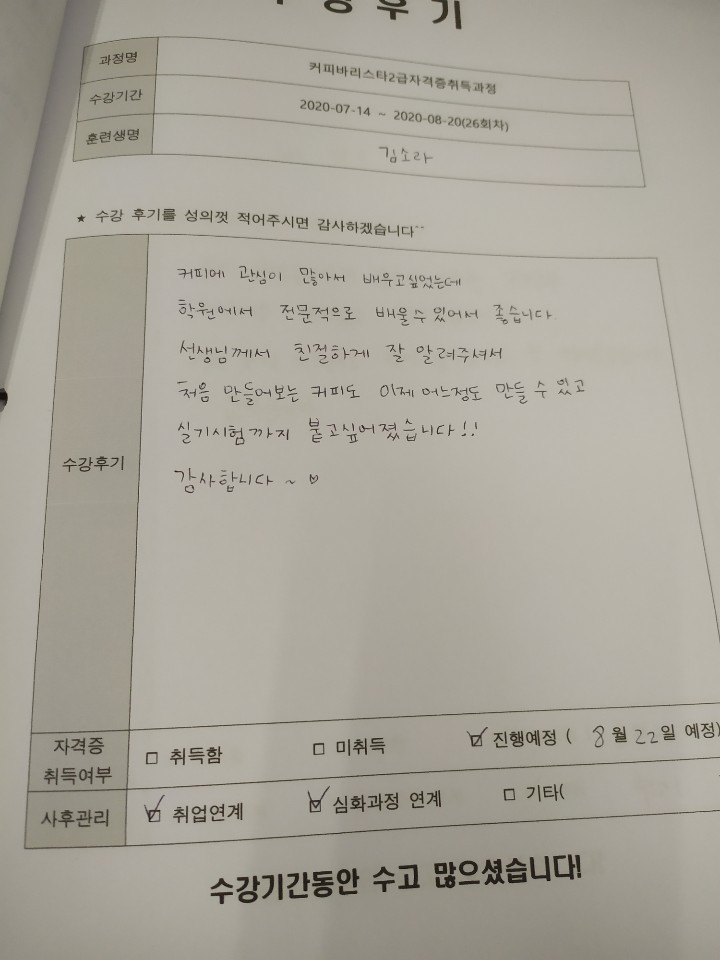 수강후기
과정명 커피바리스타2급자격증취득과정
수강기간 2020-07-14 ~ 2020-08-20(26회차)
훈련생명 김소라
★ 수강 후기를 성의껏 적어주시면 감사하겠습니다^^
수강후기
커피에 관심이 많아서 배우고싶었는데
학원에서 전문적으로 배울수있어서 좋습니다
선생님께서 친절하게 잘 알려주셔서
처음 만들어보는 커피도 이제 어느정도 만들 수 있고
실기시험까지 붙고싶어졌습니다!!
감사합니다 ~ ♡
자격증
취득여부
□ 취득함 □ 미취득 ☑ 진행예정 ( 8월 22일 예정)
사후관리 ☑ 취업연계 ☑ 심화과정 연계 □ 기타(
수강기간동안 수고 많으셨습니다!